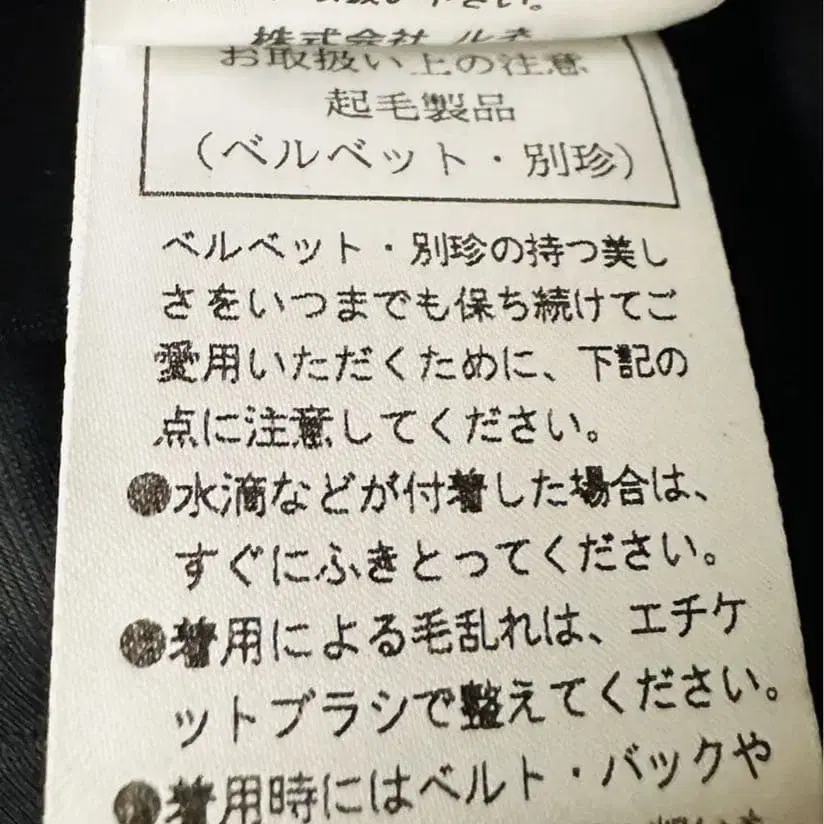 株式会社 ル
お取扱い上の注意
起毛製品
（ベルベット・別珍）
ベルベット・別珍の持つ美し
さをいつまでも保ち続けてご
愛用いただくために、下記の
点に注意してください。
●水滴などが付着した場合は、
すぐにふきとってください。
●着用による毛乱れは、エチケ
ットブラシで整えてください。
●着用時にはベルト・バックや